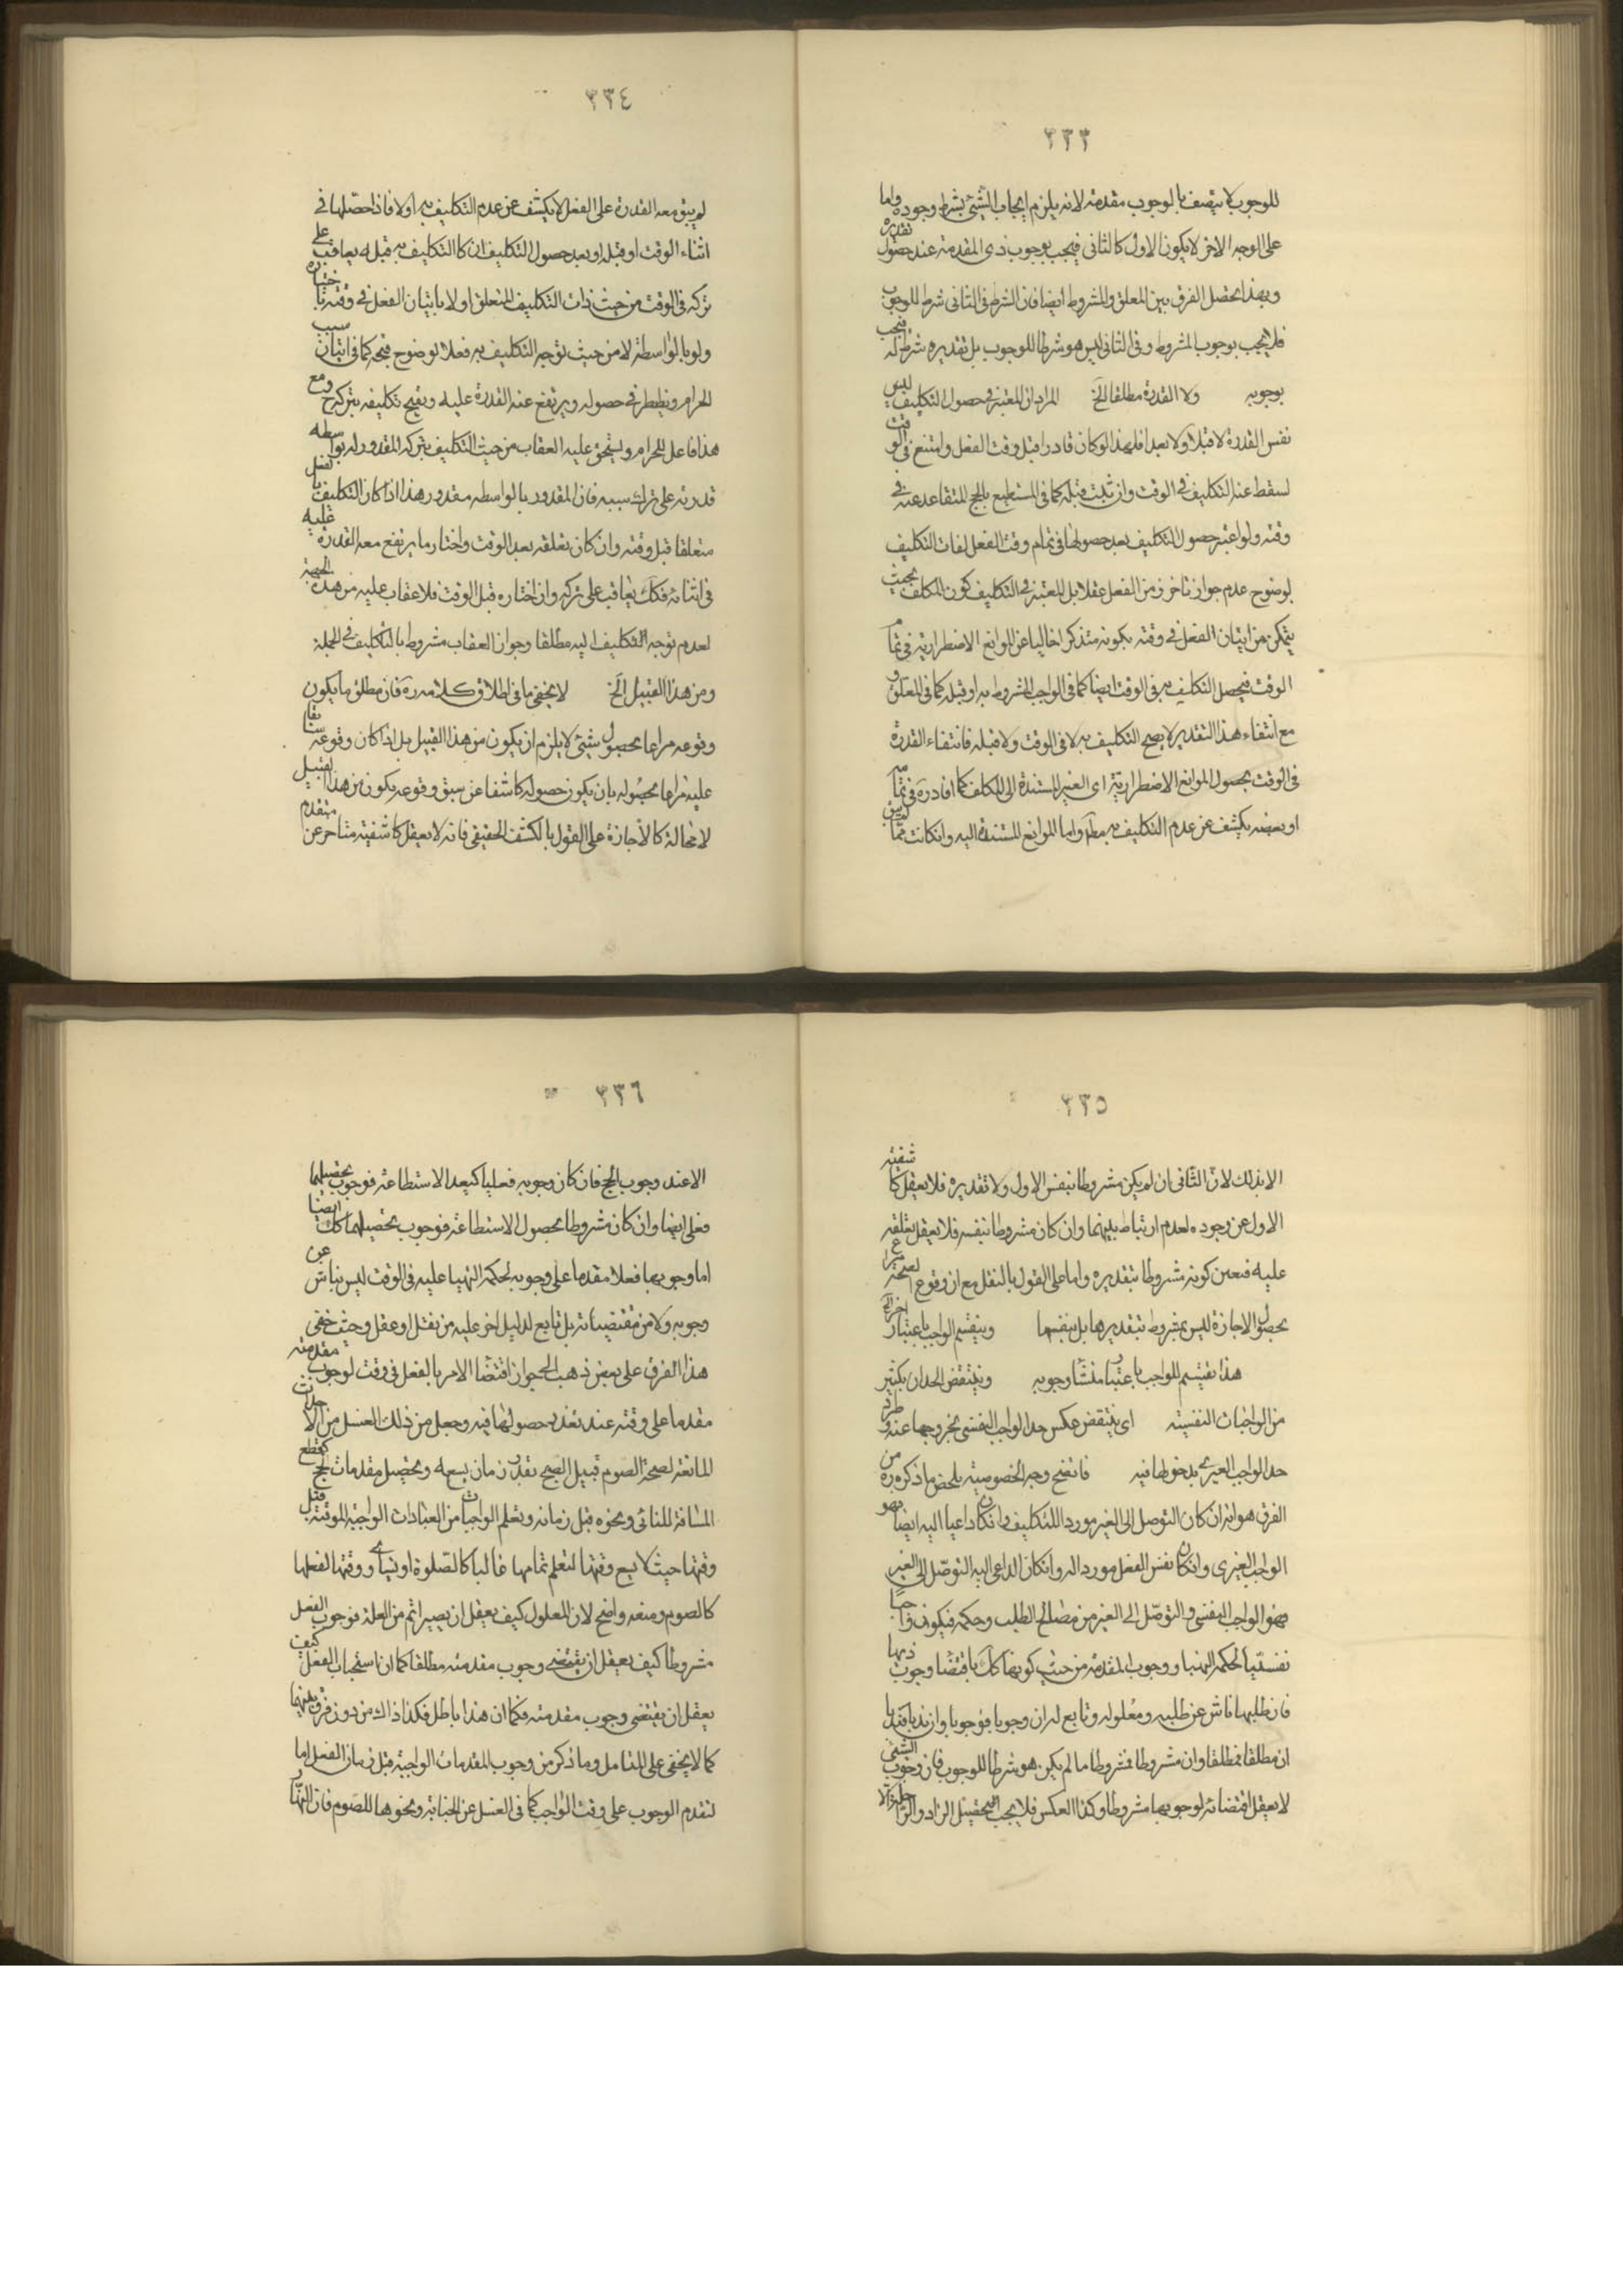 ٣٣٣
للوجوب لا يتصف بالوجوب مقدمة لانه يلزم ايجاب الشيئ بشرط وجوده واما
على الوجه الاخر لا يكون الاول كالثاني فيجب بوجوب ذى المقدمة عند حصول تقديره
وبهذا يحصل الفرق بين المعلق والمشروط ايضا فان الشرط فى الثانى شرط للوجوب
فلا يجب بوجوب المشروط وفى الثانى ليس هو شرطا للوجوب بل تقديره شرط له فيجب
بوجوبه ولا القدرة مطلقا الخ المراد ان المعتبر فى حصول التكليف ليس
نفس القدرة لا قبلا ولا بعدا فلهذا لو كان قادرا قبل وقت الفعل وامتنع فى الوقت
لسقط عنه التكليف فى الوقت وان ثبت قبله كما فى المستطيع بالحج المتقاعد عنه فى
وقته ولو اعتبر حصول التكليف بعد حصولها فى تمام وقت الفعل لفات التكليف
لوضوح عدم جواز تاخره من الفعل عقلا بل المعتبر فى التكليف كون المكلف بحيث
يتمكن من اتيان الفعل فى وقته بكونه متذكرا خاليا عن الموانع الاضطرارية فى تمام
الوقت فيحصل التكليف به فى الوقت ايضا كما فى الواجب المشروط به او قبله كما فى المعلق و
مع انتفاء هذا التقدير لا يصح التكليف به لا فى الوقت ولا قبله فانتفاء القدرة
فى الوقت بحصول الموانع الاضطرارية اى الغير المستندة الى المكلف كما افاده ره فى تمامه
او بعضه يكشف عن عدم التكليف به مط واما الموانع المستندة اليه وانكانت مما
٣٣٤
لم يبق معه القدرة على الفعل لا يكشف عن عدم التكليف به اولا فاذا حصلها فى
اثناء الوقت او قبله او بعد حصول التكليف ان كا التكليف به قبله يعاقب على
تركه فى الوقت من حيث ذات التكليف المتعلق اولا باتيان الفعل فى وقته باختياره
ولو بالواسطة لا من حيث توجه التكليف به فعلا لوضوح قبحه كما فى اتيان سبب
الحرام ويضطر فى حصوله ويرتفع عنه القدرة عليه ويقبح تكليفه بتركه ح ومع
هذا فاعل للحرام ويستحق عليه العقاب من حيث التكليف بتركه المقدور له بواسطه
قدرته على ترك سببه فان المقدور بالواسطه مقدور هذا اذا كان التكليف بالفعل
متعلقا قبل وقته وان كان تعلقه بعد الوقت واختار ما يرتفع معه القدرة عليه
فى اثنائه فكك يعاقب على تركه وان اختاره قبل الوقت فلا عقاب عليه من هذه الجهة
لعدم توجه التكليف اليه مطلقا وجواز العقاب مشروط بالتكليف فى الجملة
ومن هذا القبيل الخ لا يخفى ما فى اطلاق كلامه ره فان مطلق ما يكون
وقوعه مراعا بحصول شيئ لا يلزم ان يكون من هذا القبيل بل اذا كان وقوعه سابقا
عليه مراعا بحصوله بان يكون حصوله كاشفا عن سبق وقوعه يكون من هذا القبيل
لا محالة كالاجازة على القول بالكشف الحقيقى فانه لا يعقل كاشفية متاخر عن متقدم
٣٣٥
الا بذلك لان الثانى ان لم يكن مشروطا بنفس الاول ولا تقديره فلا يعقل كاشفيته
الاول عن وجوده لعدم ارتباط بينهما وان كان مشروطا بنفسه فلا يعقل تعلقه
عليه فتعين كونه مشروطا بتقديره واما على القول بالنقل مع ان وقوع الصحة مراعا
بحصول الاجازة ليس بمشروط بتقديرها بل بنفسها وينقسم الواجب باعتبار اخر الخ
هذا تقسيم للواجب باعتبار منشأ وجوبه وينتقض الحدان بكثير
من الواجبات النفسية اى ينتقض عكس حد الواجب النفسى بخروجها عنه وطرد
حد الواجب الغيرى بدخولها فيه فاتضح وجه الخصوصية ملخص ما ذكره ره من
الفرق هو انه ان كان التوصل الى الغير موردا للتكليف وان كا داعيا اليه ايضا فهو
الواجب الغيرى وان كان نفس الفعل موردا له وانكان الداعى اليه التوصل الى الغير
فهو الواجب النفسى والتوصل الى الغير من مصالح الطلب وحكمه فيكون واجبا
نفسيا لحكمة التهيا ووجوب المقدمة من حيث كونها كك باقتضا وجوب ذيها
فان طلبها ناش عن طلبه ومعلوله وتابع له ان وجوبا فوجوبا وان ندبا فندبا
ان مطلقا فمطلقا وان مشروطا فمشروطا ما لم يكن هو شرطا للوجوب فان وجوب الشيئ
لا يعقل اقتضائه لوجوبها مشروطا وكذا العكس فلا يجب تحصيل الزاد والراحلة الا
٣٣٦
الا عند وجوب الحج فان كان وجوبه فعليا كبعد الاستطاعة فوجوب تحصيلهما
فعلى ايضا وان كان مشروطا بحصول الاستطاعة فوجوب تحصيلهما كك ايضا
اما وجوبها فعلا مقدما على وجوبه لحكمة التهيا عليه فى الوقت ليس بناش عن
وجوبه ولا من مقتضياته بل تابع لدليل اخر عليه من نقل او عقل وحيث خفى
هذا الفرق على بعض ذهب الى جواز اقتضا الامر بالفعل فى وقت لوجوب مقدمته
مقدما على وقته عند تعذر حصولها فيه وجعل من ذلك الغسل من الاحداث
المانعة لصحة الصوم قبيل الصبح بقدر زمان يسعه وتحصيل مقدمات الحج كقطع
المسافة للنائى ونحوه قبل زمانه وتعلم الواجبات من العبادات الواجبة الموقتة قبل
وقتها حيث لا يسع وقتها لتعلم تمامها غالبا كالصلوة او يساوى وقتها لفعلها
كالصوم ومنعه واضح لان المعلول كيف يعقل ان يصير اتم من العلة فوجوب الفعل
مشروطا كيف يعقل ان يقتضى وجوب مقدمته مطلقا كما ان استحباب الفعل كيف
يعقل ان يقتضى وجوب مقدمته فكما ان هذا باطل فكذا ذاك من دون فرق بينهما
كما لا يخفى على المتامل وما ذكر من وجوب المقدمات الواجبة قبل زمان الفعل اما
لتقدم الوجوب على وقت الواجب كما فى الغسل عن الجنابة ونحوها للصوم فان النهار